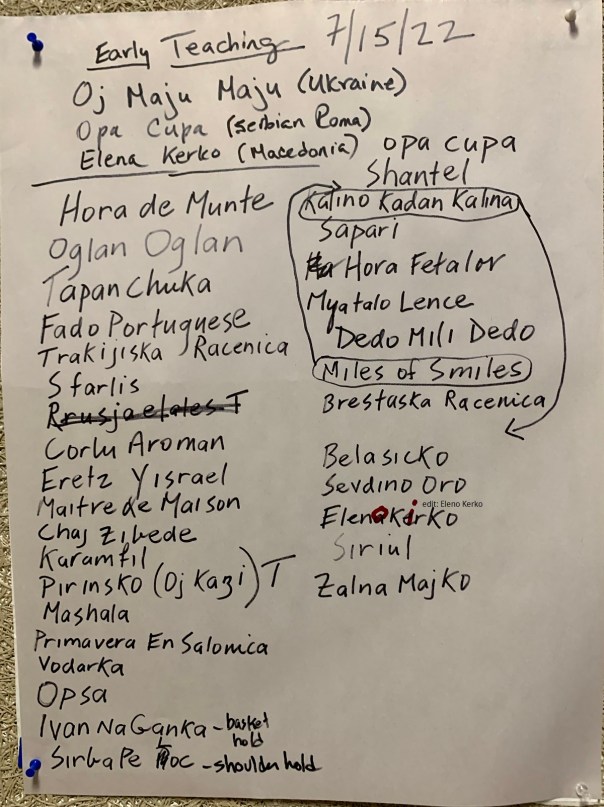 Early Teaching 7/15/22
Oj Maju Maju (Ukraine)
Opa Cupa (Serbian Roma)
Elena Kerko (Macedonia)
Hora de Munte
Oglan Oglan
Tapanchuka
Fado Portuguese
Trakijiska Racenica
Sfarlis
Rrusjaelates T
Corlu Aroman
Eretz Yisrael
Maitre de Maison
Chaj Zibede
Karamfil
Pirinsko (Oj Kazi) T
Mashala
Primavera En Salonica
Vodarka
Opsa
Ivan Na Ganka - basket
hold
Sirba Pe Loc - shoulder hold
opa cupa
Shantel
Kalino Kadan Kalina
Sapari
Hora Fetalor
Myatalo Lence
Dedo Mili Dedo
Miles of Smiles
Brestaska Racenica
Belasicko
Sevdino Oro
edit: Eleno Kerko
Elenakirko
Siriul
Zalna Majko